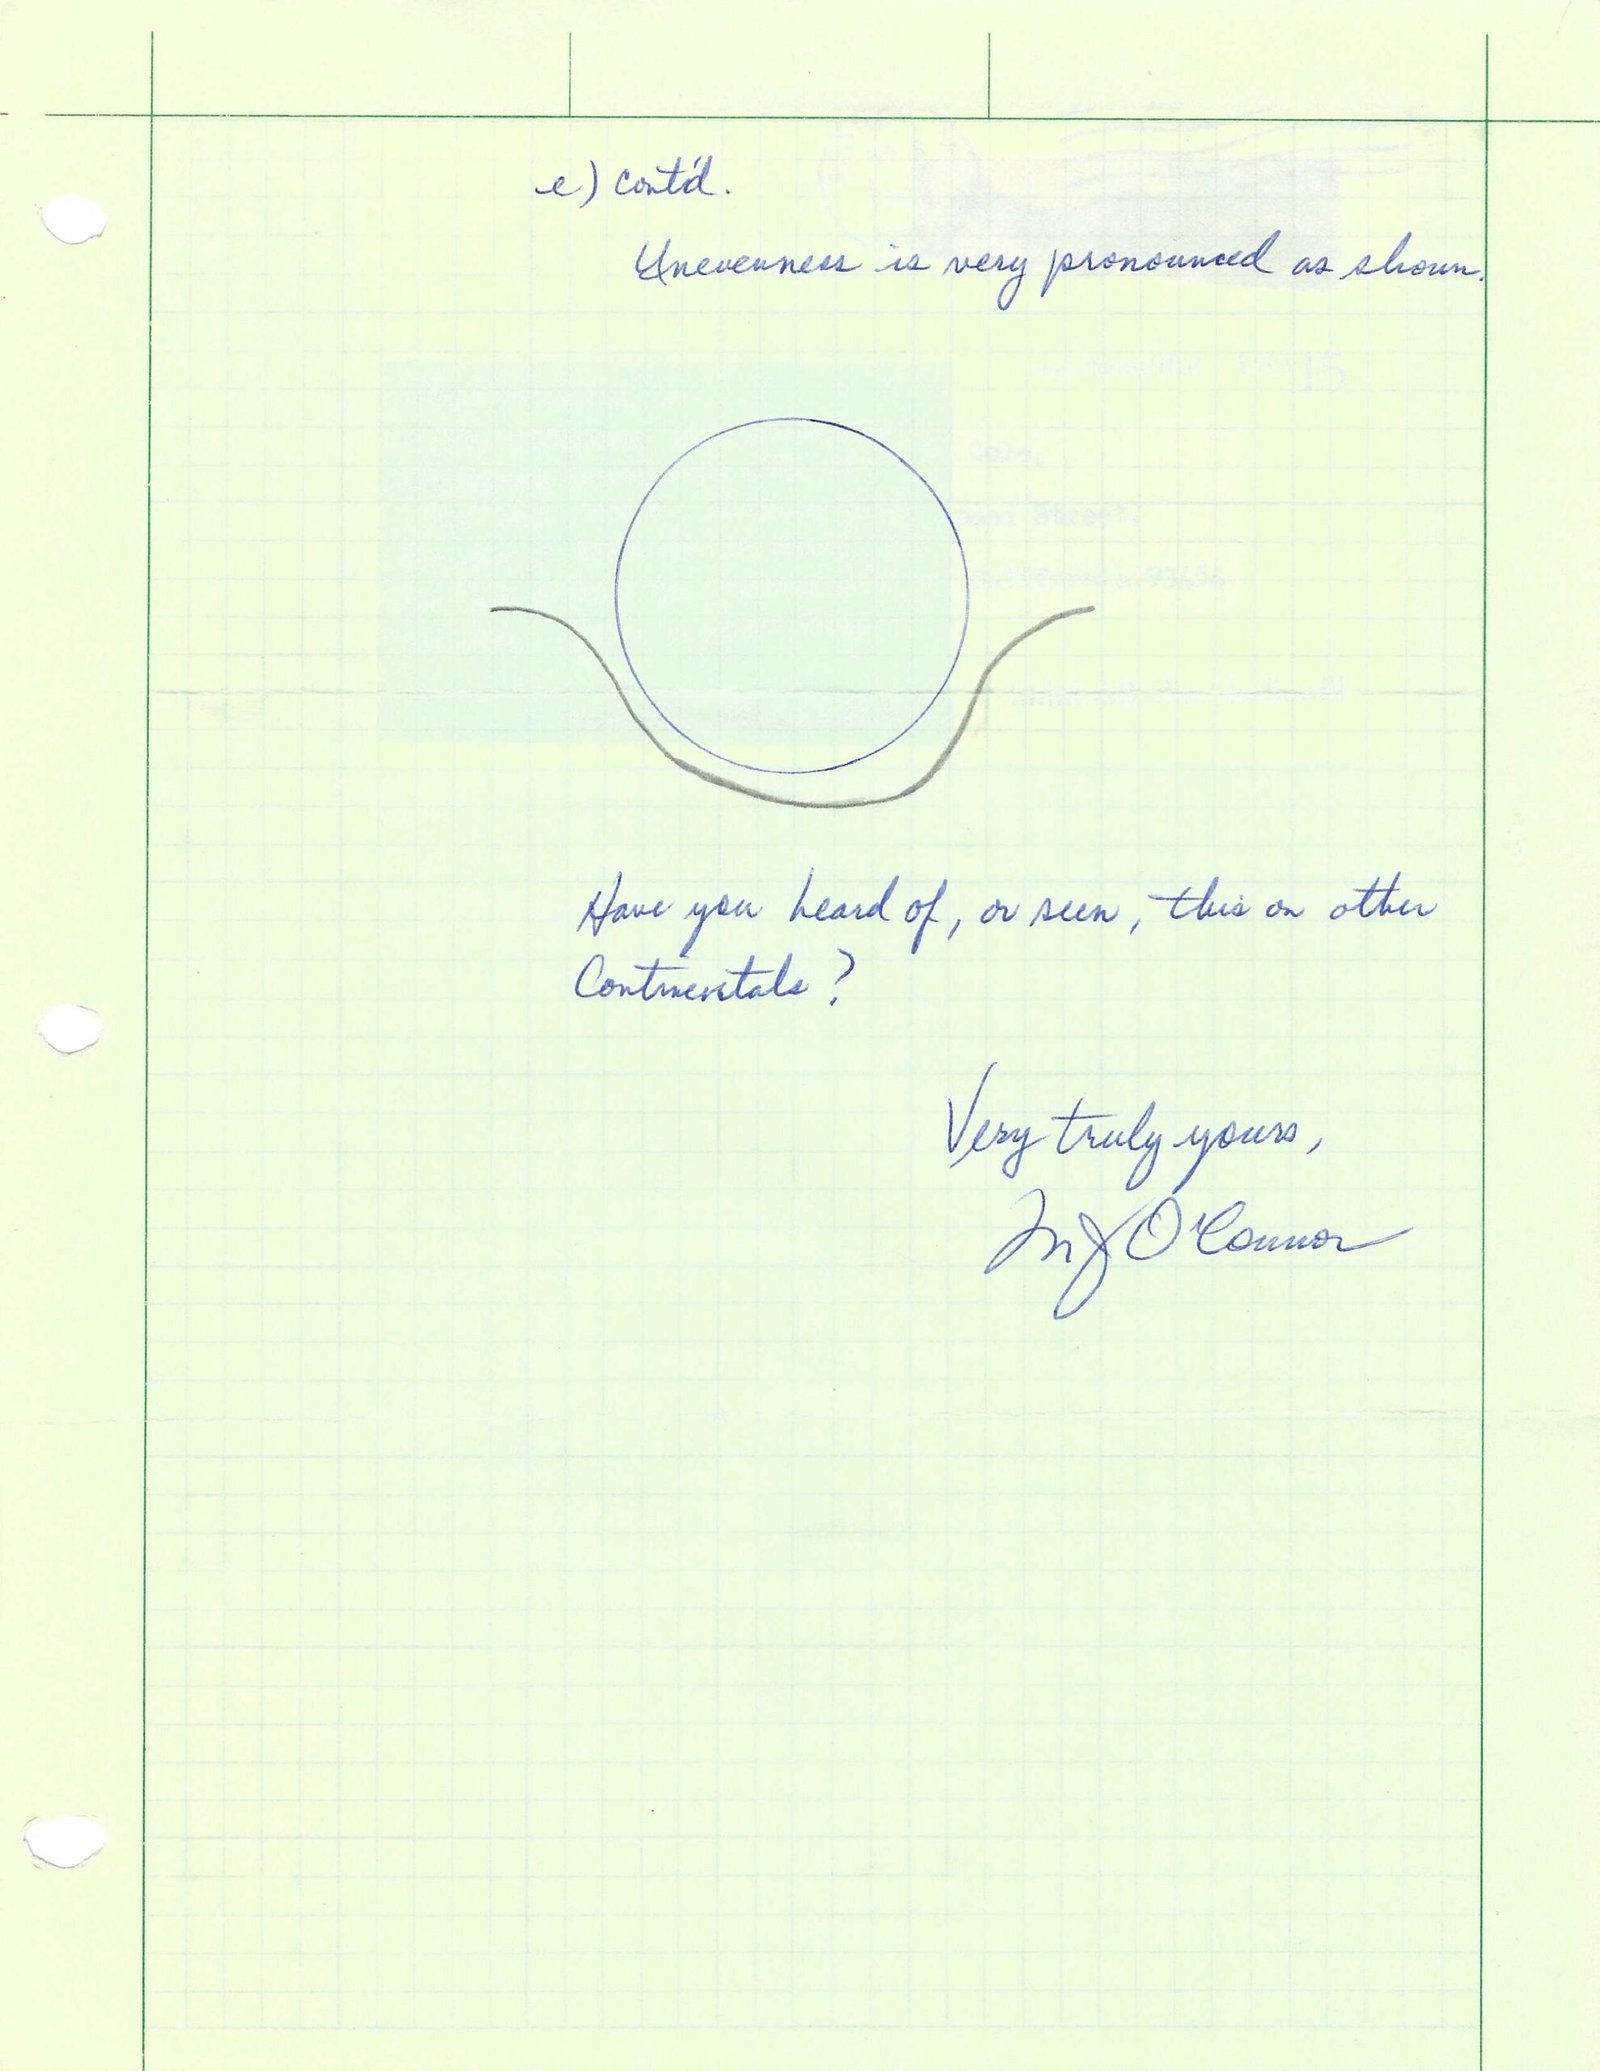 e) Cont'd.
Unevenness is very pronounced as shown.
Have you heard of, or seen, this on other
Continentals?
Very truly yours,
O'Connor